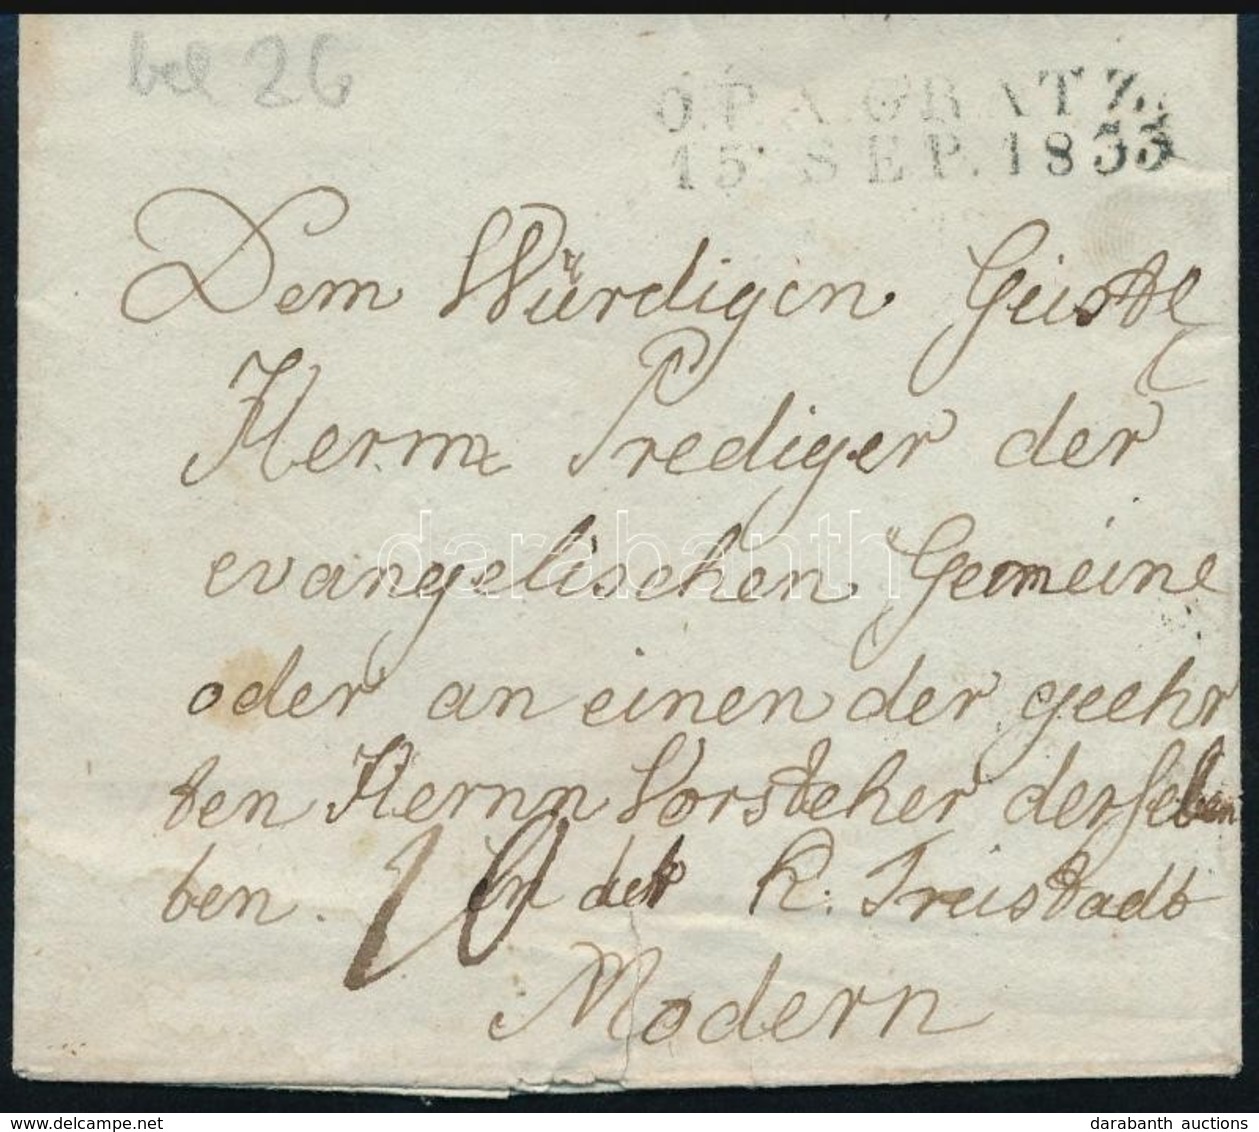 bel 26
O.P.A. GRATZ.
15 SEP. 1833
Dem Würdigen Geistl
Herrn Prediger der
evangelischen Gemeine
oder an einen der geehr
ten Herrn Vorsteher derselben
ben. 10 In der K. Freistadt
Modern
darabanth
delcampe.net
darabanth auctions